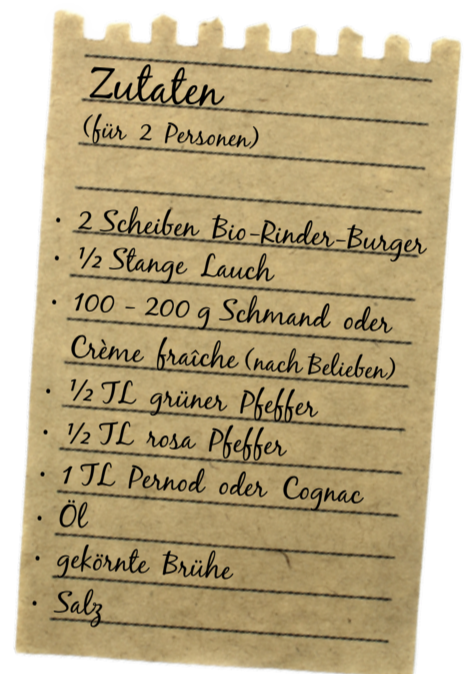 Zutaten
(für 2 Personen)
• 2 Scheiben Bio-Rinder-Burger
• ½ Stange Lauch
• 100 - 200 g Schmand oder
Crème fraîche (nach Belieben)
• ½ TL grüner Pfeffer
• ½ TL rosa Pfeffer
• 1 TL Pernod oder Cognac
• Öl
• gekörnte Brühe
• Salz